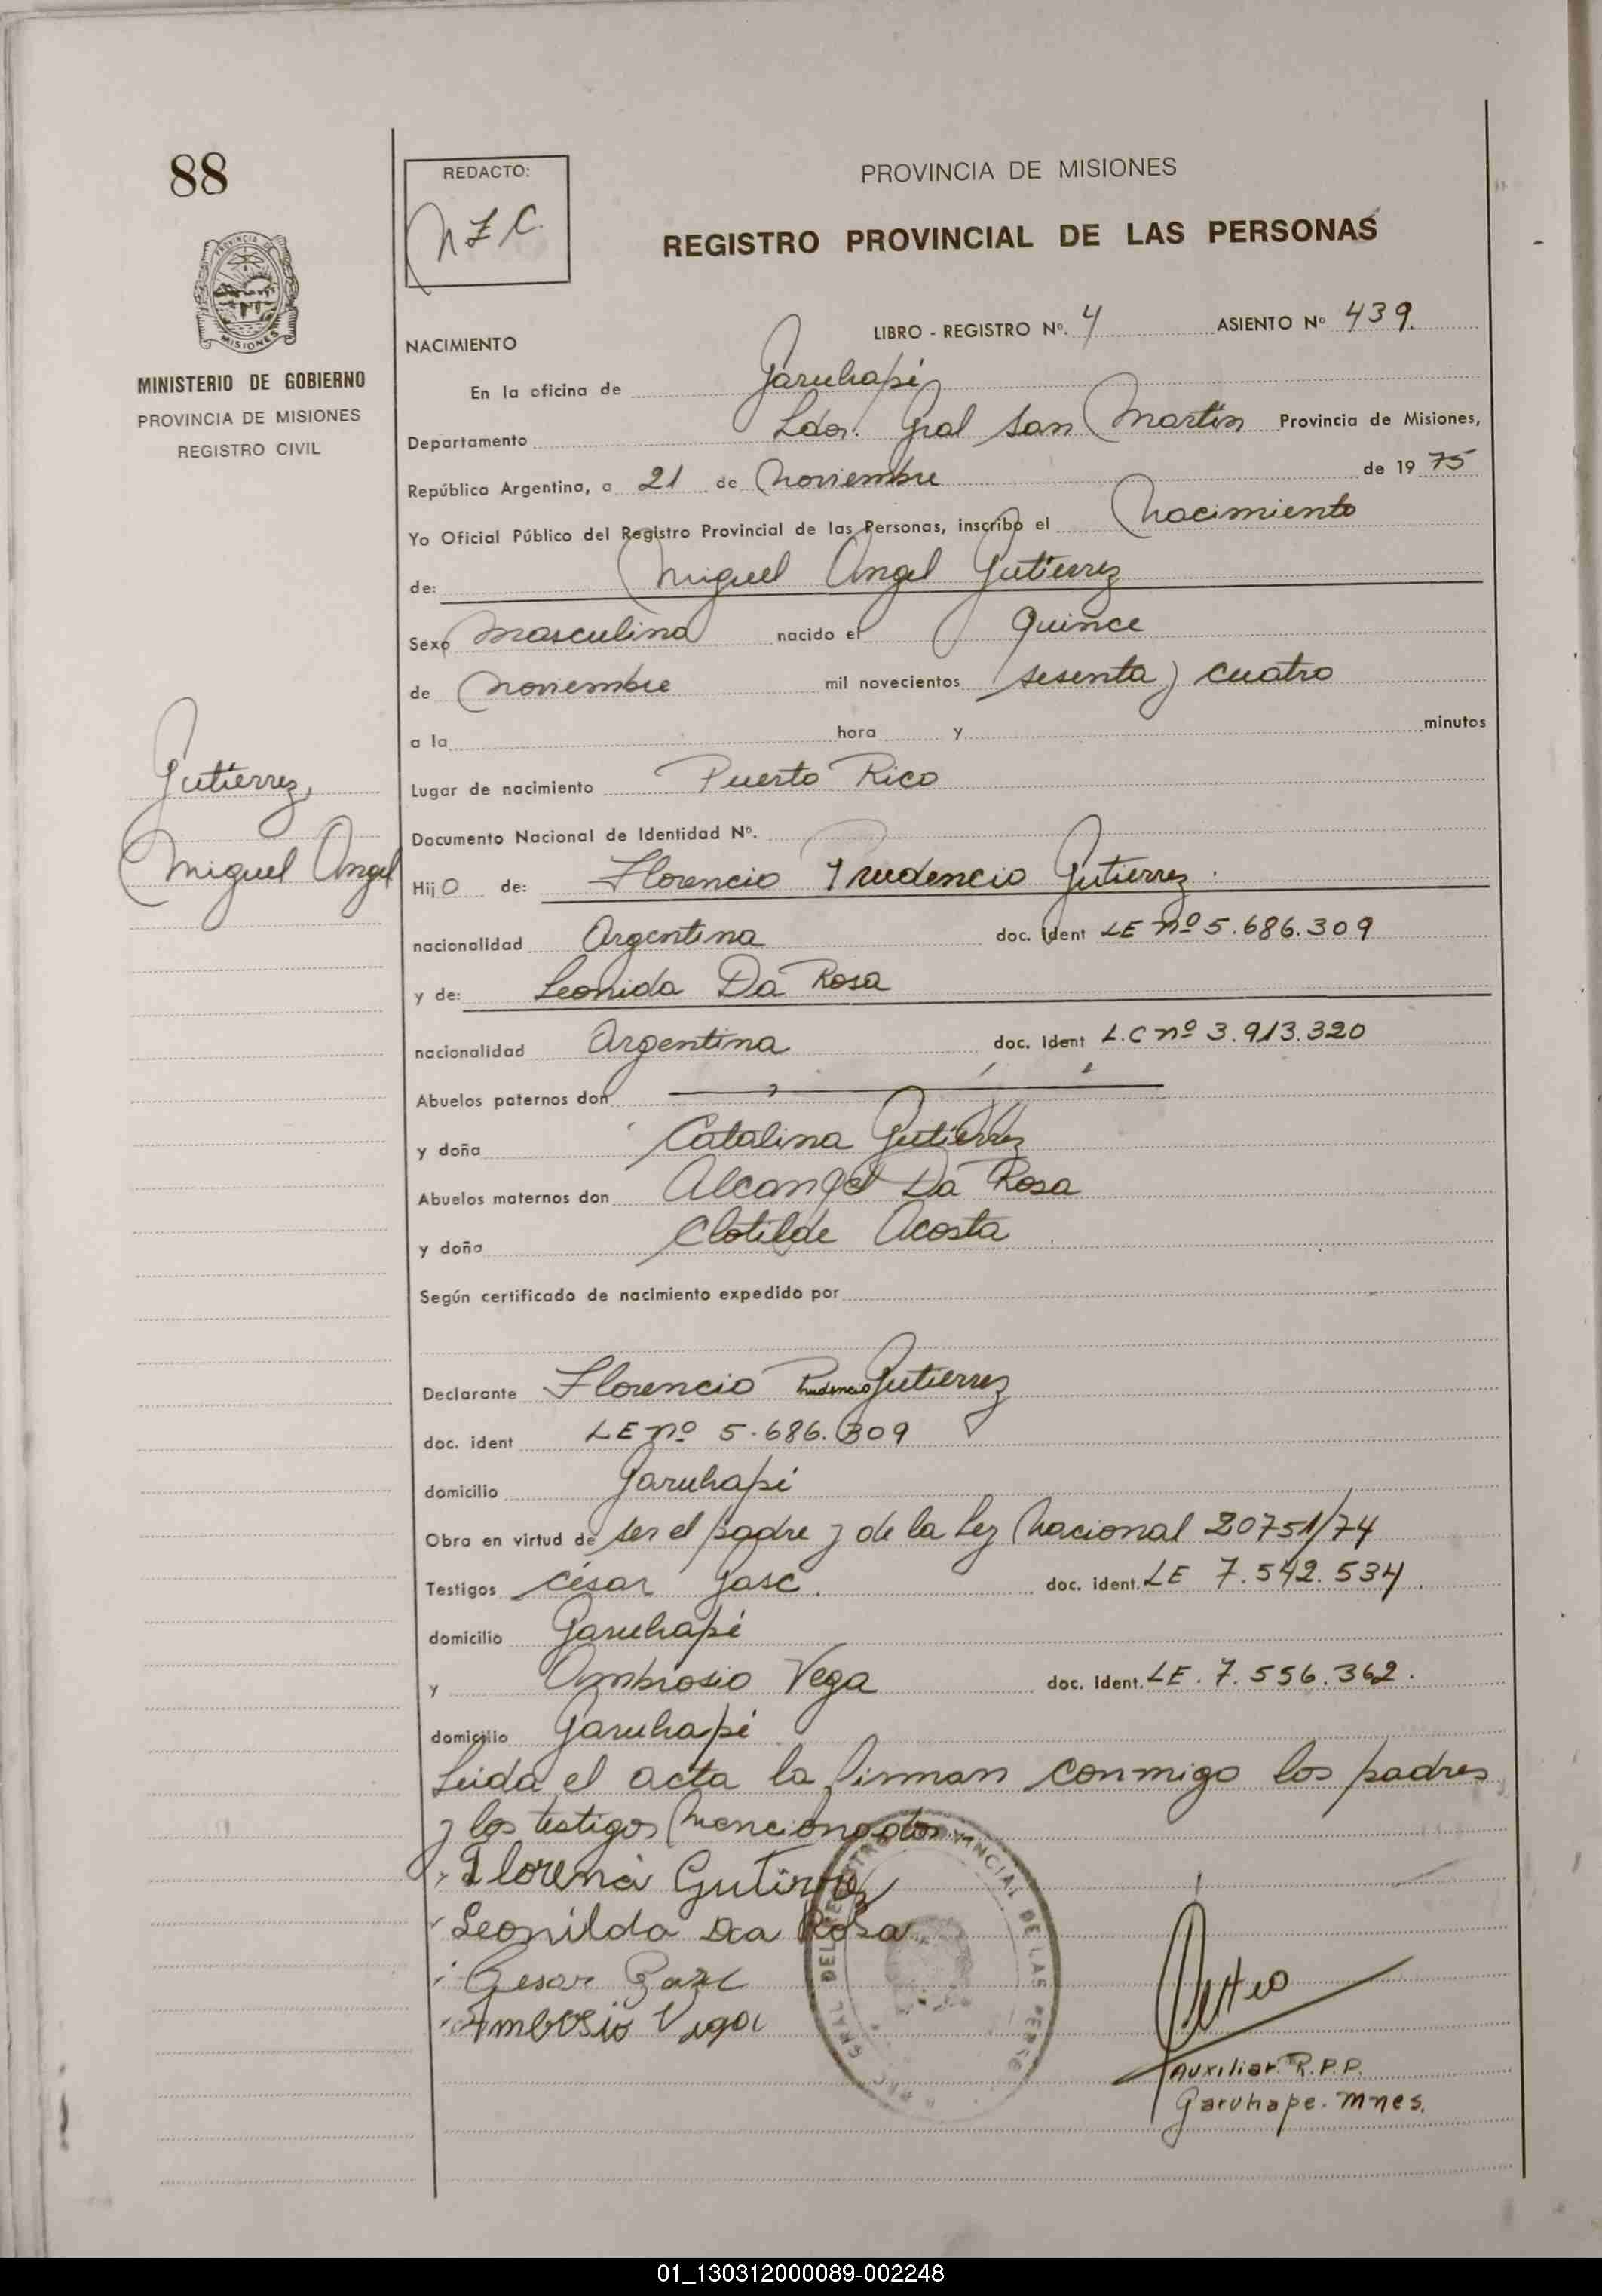 88
REDACTO:
NZC.
PROVINCIA DE MISIONES
REGISTRO PROVINCIAL DE LAS PERSONAS
PROVINCIA DE
MISIONES
MINISTERIO DE GOBIERNO
PROVINCIA DE MISIONES
REGISTRO CIVIL
LIBRO - REGISTRO Nº. 4 ASIENTO Nº 439.
NACIMIENTO
En la oficina de Garuhapé
Departamento Ldor. Gral San Martín Provincia de Misiones,
República Argentina, a 21 de Noviembre de 1975
Yo Oficial Público del Registro Provincial de las Personas, inscribo el Nacimiento
de: Miguel Angel Gutierrez
Sexo masculino nacido el quince
de Noviembre mil novecientos sesenta y cuatro
a la hora y minutos
Lugar de nacimiento Puerto Rico
Gutierrez,
Miguel Angel
Documento Nacional de Identidad Nº.
Hijo de: Florencio Prudencio Gutierrez.
nacionalidad Argentina doc. ident LE nº 5.686.309
y de: Leonida Da Rosa
nacionalidad Argentina doc. ident L.C nº 3.913.320
Abuelos paternos don
y doña Catalina Gutierrez
Abuelos maternos don Alcangel Da Rosa
y doña Clotilde Acosta
Según certificado de nacimiento expedido por
Declarante Florencio Prudencio Gutierrez
doc. ident LE nº 5.686.309
domicilio Garuhapé
Obra en virtud de ser el padre y de la Ley Nacional 20751/74
Testigos César Gasc. doc. ident. LE 7.542.534.
domicilio Garuhapé
y Ambrosio Vega doc. ident. LE. 7.556.362.
domicilio Garuhapé
Leida el acta la firman conmigo los padres
y los testigos mencionados.
Florencio Gutirrez
Leonilda Da Rosa
Cesar Gazc
Ambrosio Vega
DEL REGISTRO PROVINCIAL DE LAS PERSO
Auxiliar R.P.P.
Garuhape. Mnes.
01_130312000089-002248